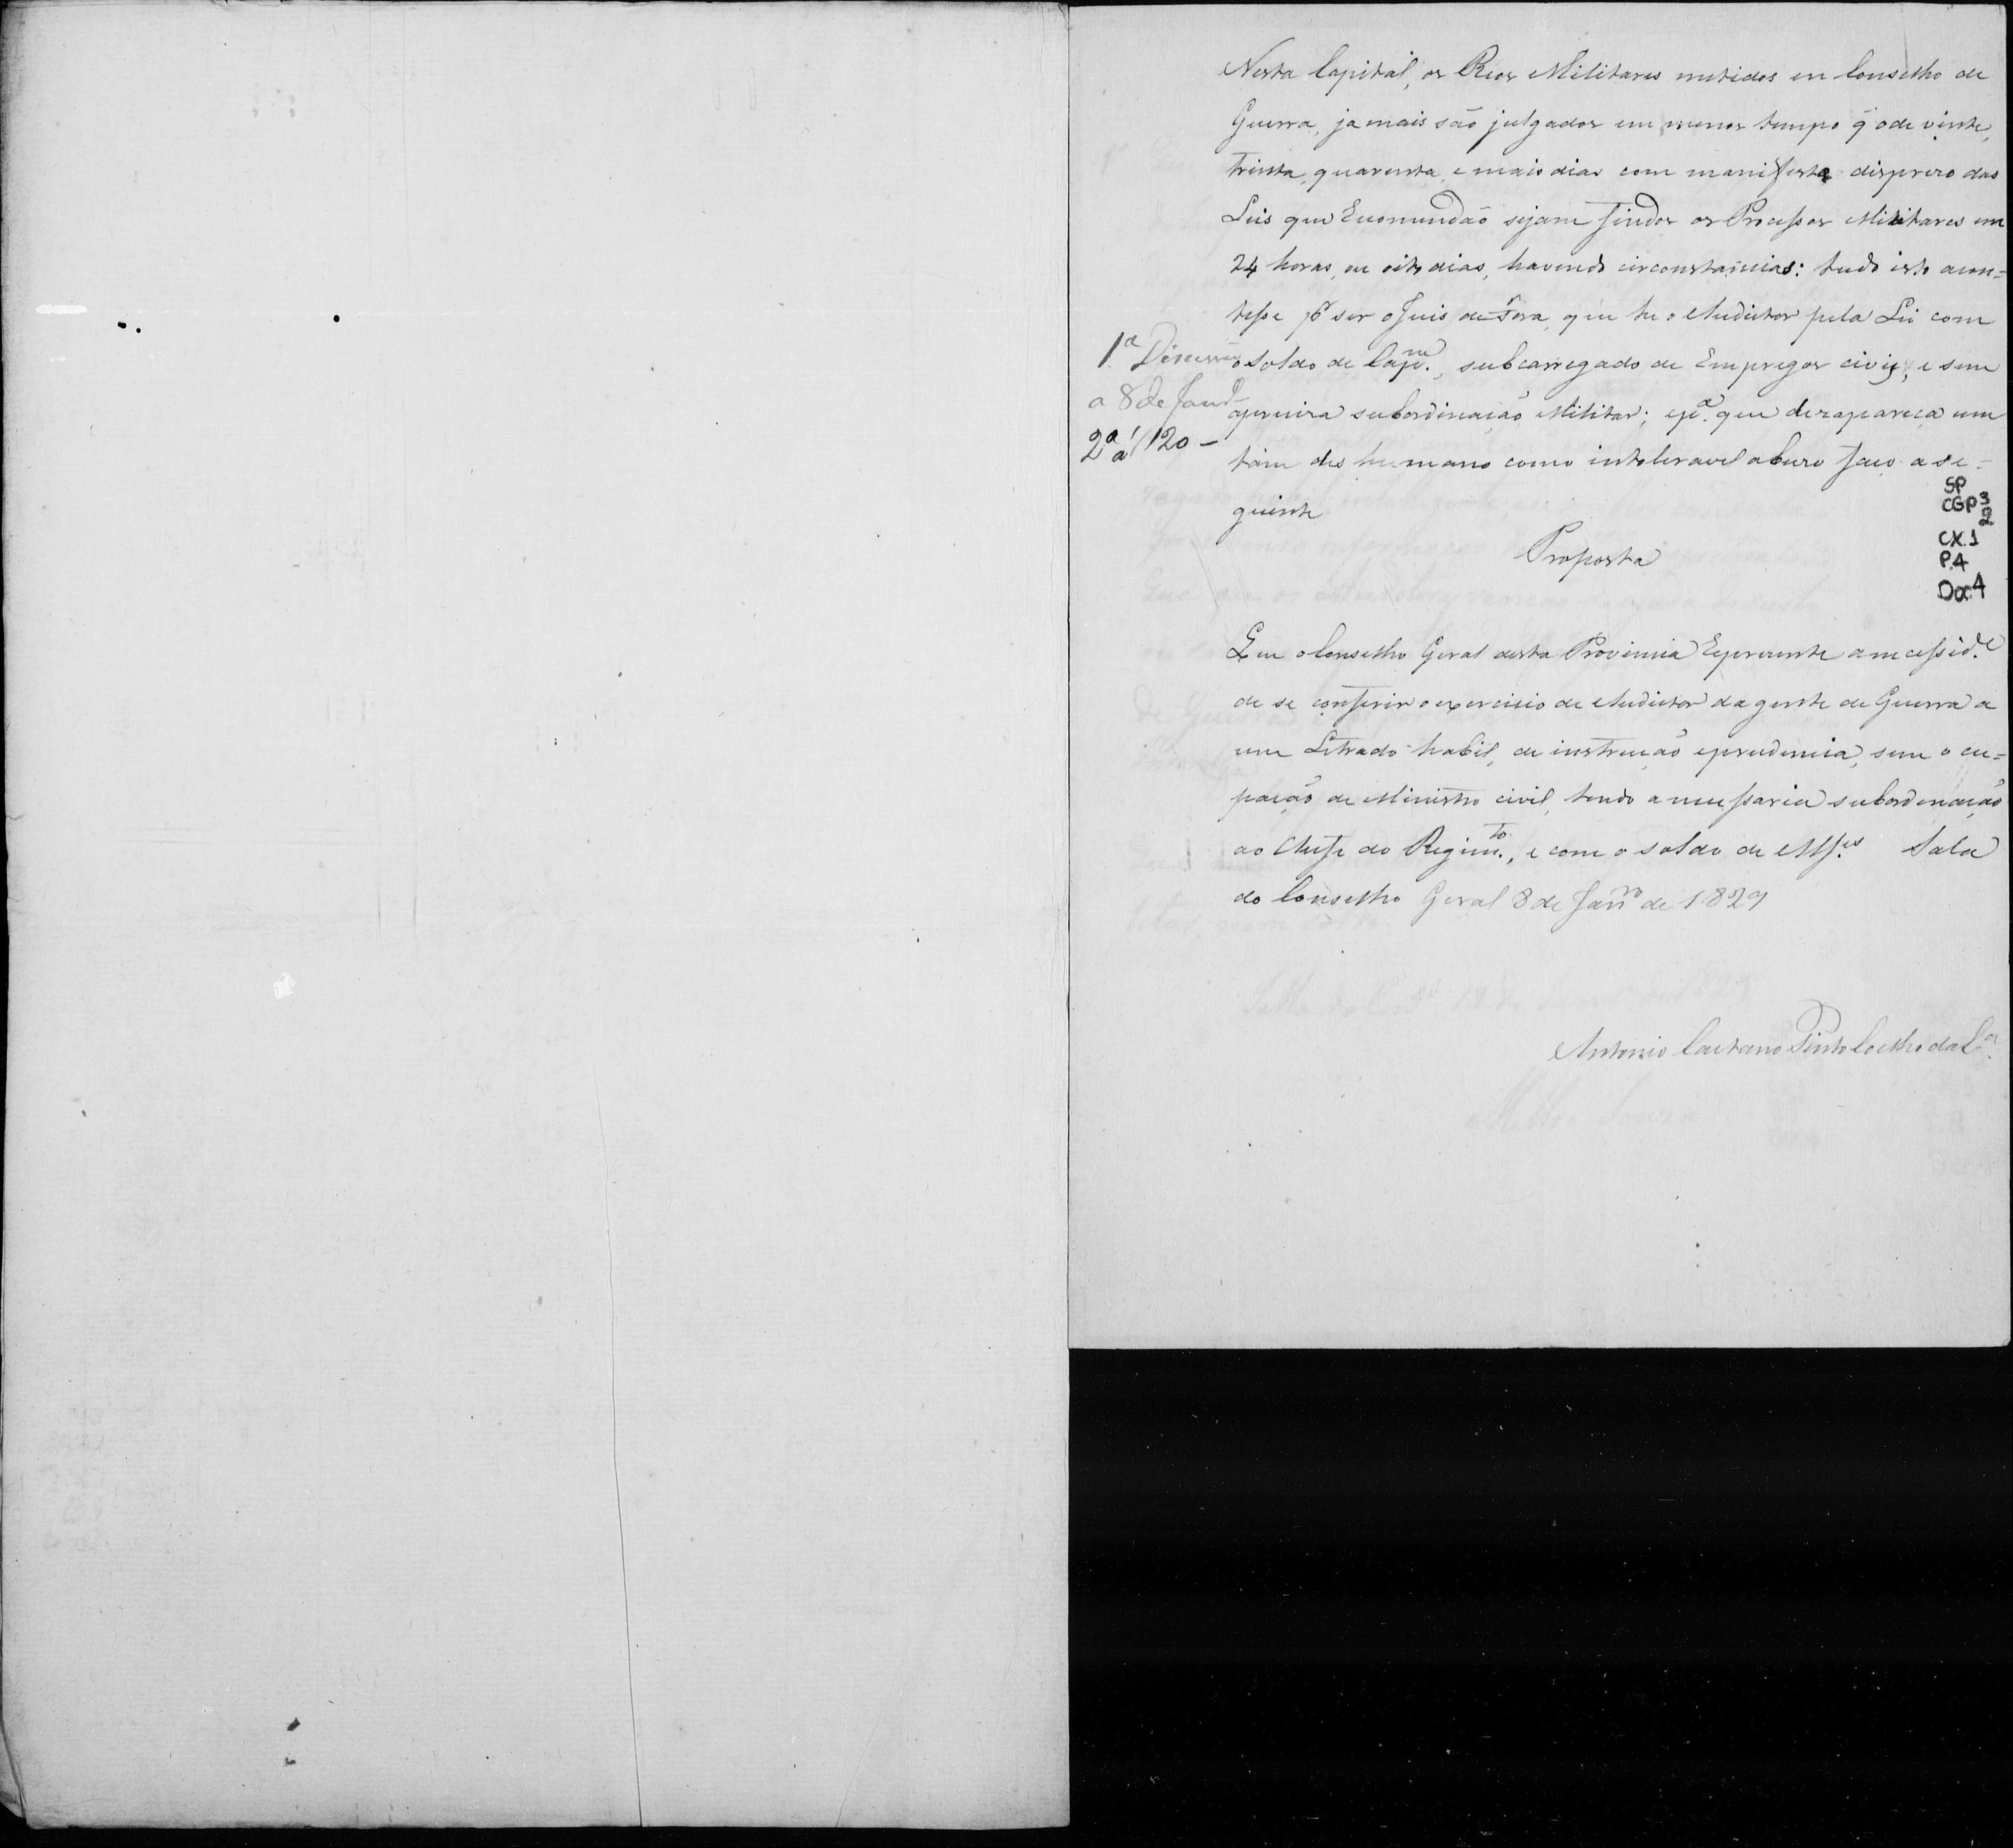 Nesta Capital, os Reos Militares metidos em Conselho de
Guerra, ja mais são julgados em menos tempo q̃ o de vinte,
trinta, quarenta, e mais dias com manifesta disprezo das
Leis que Encomendão sejam findos os Processos Militares em
24 horas, ou oito dias, havendo circonstancias: tudo isto acon=
tesse pr ser o Juis de Fora, que he o Auditor pela Lei com
o soldo de Capm., subcarregado de Empregos civis, e sem
a preciza subordinação Militar; e pa. que dezapareça um
tàm des humano como intoleravel abuzo faço a se=
guinte
1a. Discussão
a 8 de Janro
2a a 120 -
SP
CGP 3
2
CX.1
P.4
Doc 4
Proposta
Que o Conselho Geral desta Provincia Reprezente a necesside.
de se conferir o exercicio de Auditor da gente de Guerra a
um Letrado habil, de instrução e prudencia, sem o cu=
pação de Ministro civil, tendo a necessaria subordenação
ao Chefe do Regimto., e com o soldo de Alfes. Sala
do Conselho Geral 8 de Janro de 1829
Antonio Caetano Pinto Coelho da Ca.